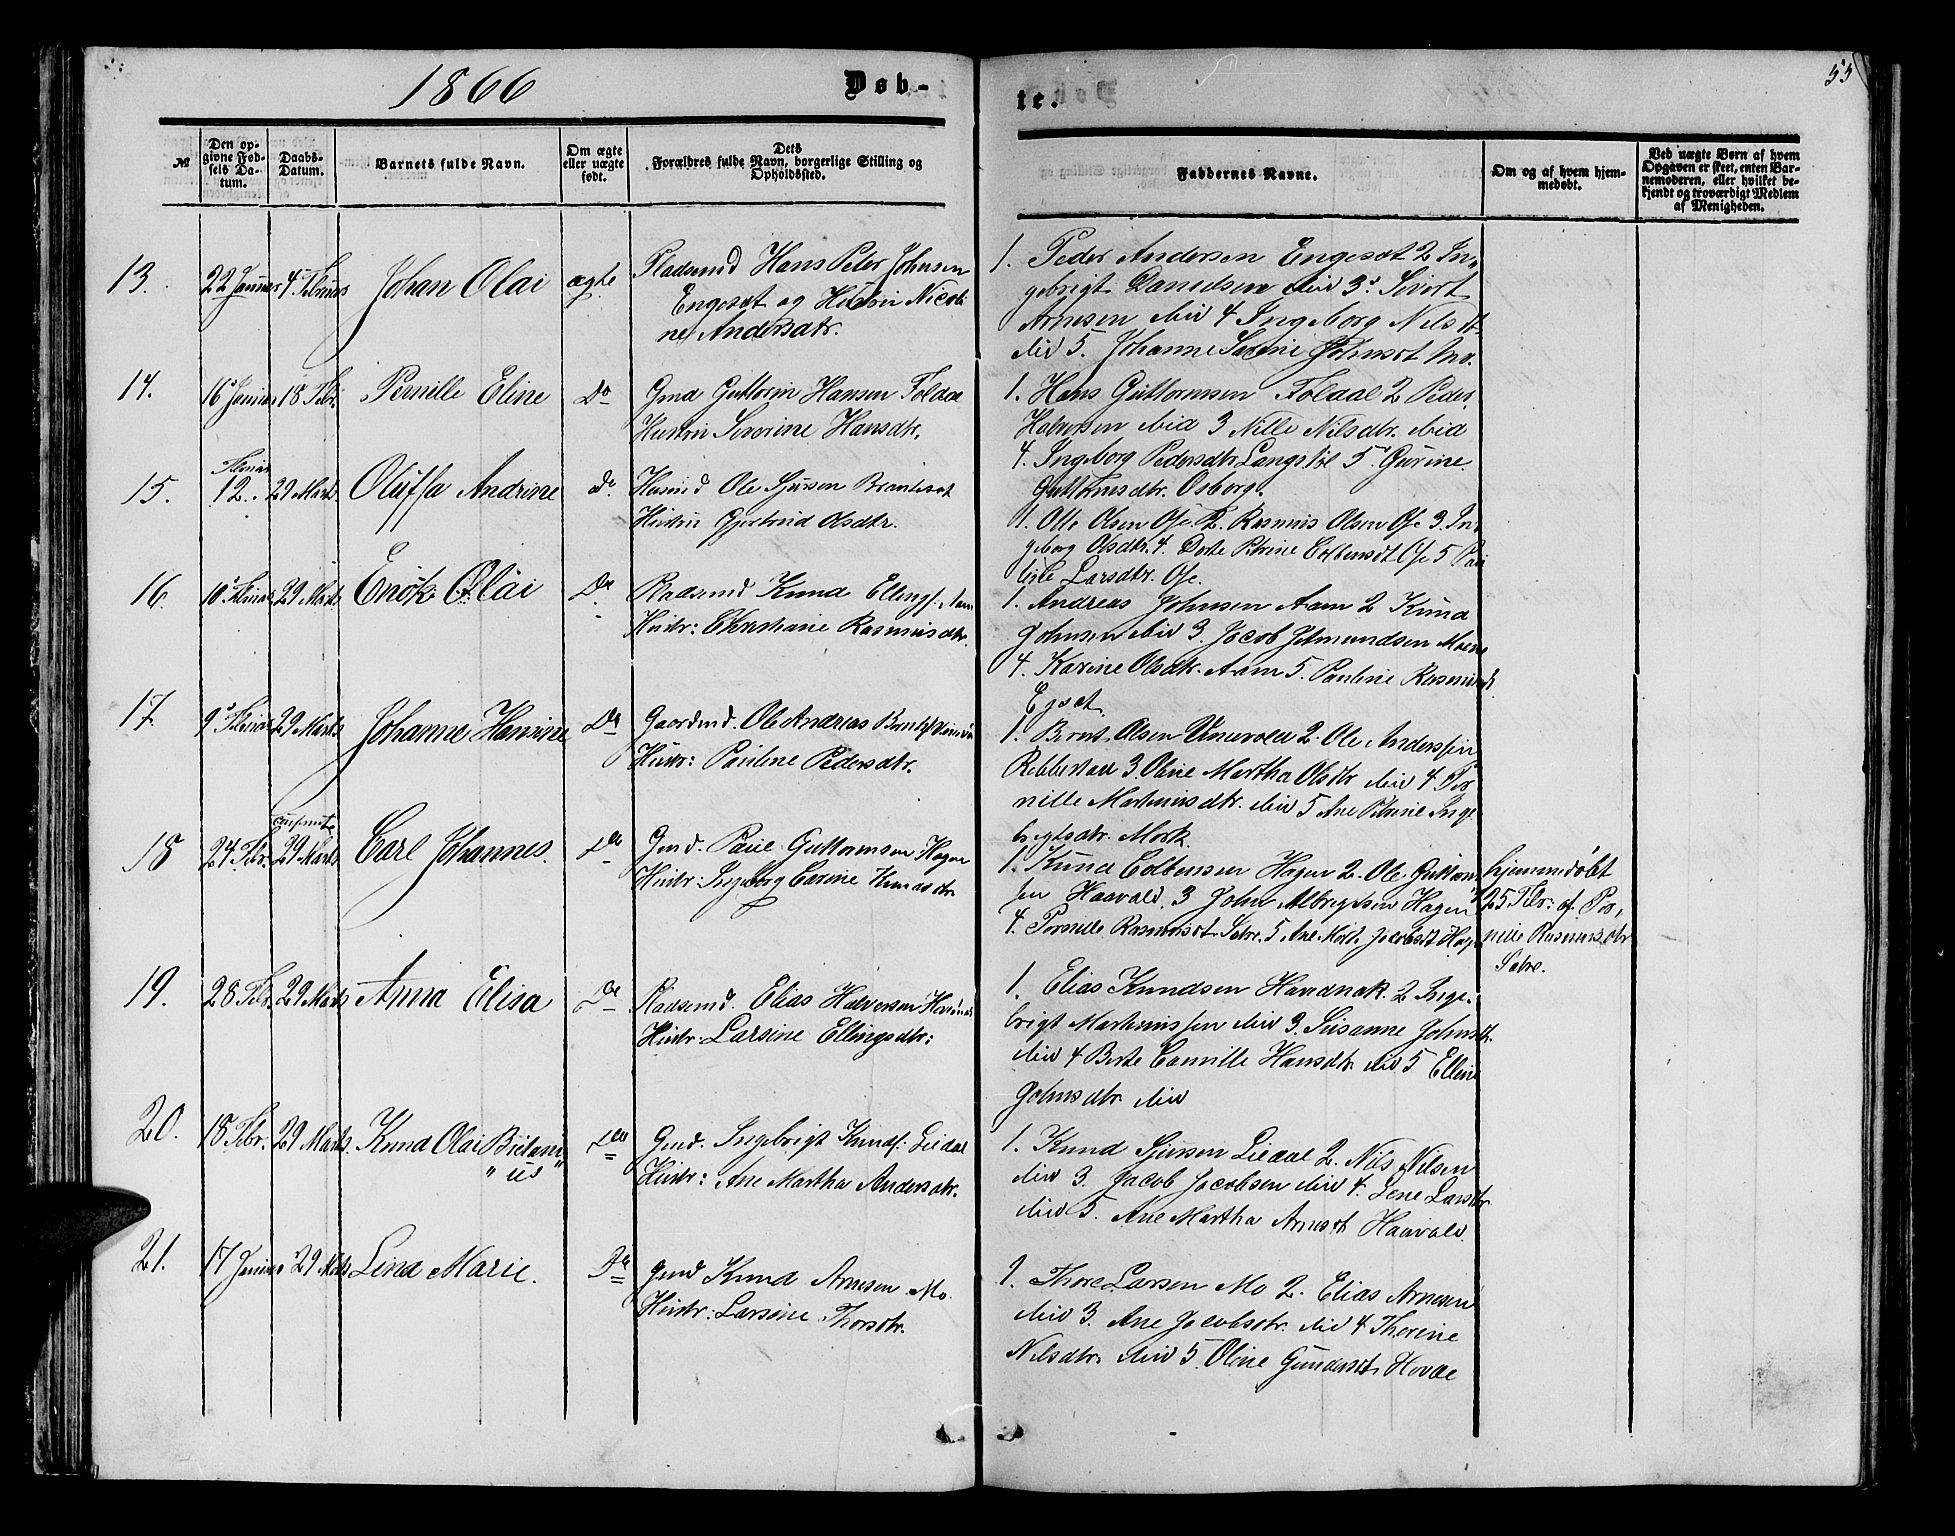 1866
Døb-
te.
55
№
Den op-
givne Fød-
sels Da-
tum.
Daabs-
Datum.
Barnets fulde Navn.
Om ægte
eller uægte
født.
Dets
Forældres fulde Navn, borgerlige Stilling og
Opholdssted.
Faddernes Navne.
Om og af hvem hjem-
medøbt.
Ved uægte Børn af hvem
Opgaven er skeet, enten Bar-
nemoderen, eller hvilket be-
kjendt og troværdigt Medlem
af Menigheden.
13.
22 Januar
4 Februar
Johan Olai
ægte
Pladsmd Hans Peter Johnsen
Engeset og Hustru Nicoli
ne Andersdtr.
1. Peder Andersen Engesæt 2 In
gebrigt Danielsen ibid 3 Sivert
Arnesen ibid 4 Ingeborg Nilsdt
ibid 5. Johanne Johnsdt
14.
16 Januar
18 Febr.
Pernille Eline
Do
Gmd Guttorm Hansen Foldal
Hustru Severine Hansdtr.
1. Hans Guttormsen Foldal 2 Peder
Halvorsen ibid 3 Nille Nilsdtr. ibid
4. Ingeborg Pedersdtr 5 Gurine
Guttormsdtr. Osborg.
15.
Februar
12.
29 Marts
Oluffa Andrine
Do
Husmd Ole Sjursen
Hustru Gjertrud Olsdtr.
1. Olsen Ose 2. Rasmus Olsen Ose 3. In
geborg Olsdtr. 4. Dorte Petrine Ose 5
Larsdtr. Ose.
16.
10 Februar
29 Marts
Enok Olai
Do
Pladsmd Knud Ellings. Aam
Hustr: Christiane Rasmusdtr.
1. Andreas Johnsen Aam 2 Knud
Johnsen ibid 3. Jacob
4. Karine Olsdtr. Aam 5. Pauline Rasmusd
17
9 Februar
29 Marts
Johanne Hansine
Do
Gaardmd. Ole Andreas
Hustr: Pauline Pedersdtr.
1. Bernt Olsen 2. Ole Anderssen
Robbestad 3. Oline Martha Olsdtr ibid 4 Per
nille Martinusdtr. ibid 5 Ane Petrine Inge
brigtsdtr. Mork
18
24 Febr.
29 Marts
Carl Johannes.
Do
Gmd. Paul Guttormsen Hagen
Hustr: Ingeborg Carine Knudsdtr
1. Knud Colbensen Hagen 2. Ole Guttorm
sen Haavold, 3 John Albrigtsen Hagen
4. Pernille Rasmusdt. Sætre. 5 Ane Mart. Jacobsdt Hag
hjemmedøbt
25 Febr: af Per„
nille Rasmusdtr
Sætre.
19.
28 Febr.
29 Marts
Anna Elisa
Do
Pladsmd. Elias Halvorsen
Hustr: Larsine Ellingsdtr:
1. Elias Knudsen 2 Inge„
brigt Martinussen ibid 3. Susanne Johnsdt.
ibid 4 Berte Camille Hansdtr. ibid 5 Elline
Johnsdtr ibid
20.
18 Febr.
29 Marts
Knud Olai Britani
„ us „
Do
Gmd. Ingebrigt Knuds: Liedal
Hustr: Ane Martha Andersdtr.
1. Knud Sjursen Liedal 2. Nils Nilsen
ibid 3. Jacob Jacobsen ibid 4. Lene Larsdtr
ibid 5. Ane Martha Arnesdt Haavold.
21.
17 Januar
29 Marts
Lina Marie.
Do
Gmd Knud Arnesen Mo.
Hustr: Larsine Thorsdtr.
1. Thore Larsen Mo 2. Elias Arnesen
ibid 3. Ane Jacobsdtr. ibid 4 Thorine
Nilsdtr. ibid 5. Oline Gundersdt. Hovde